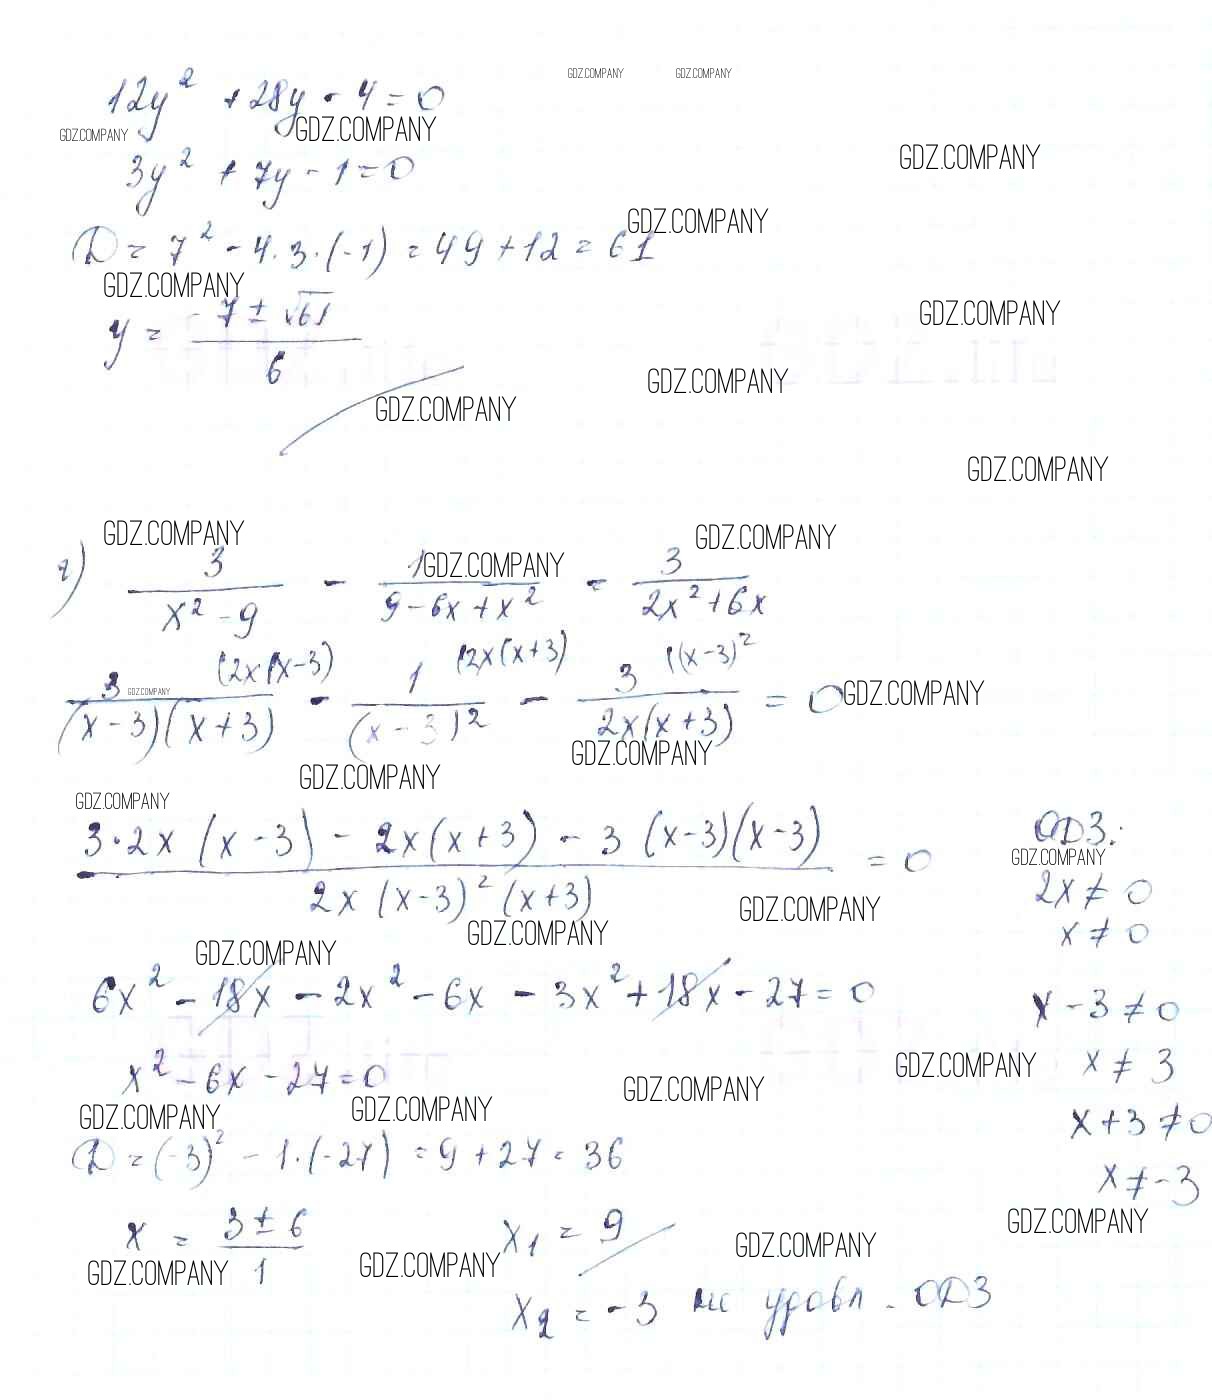 GDZ.COMPANY GDZ.COMPANY
12y² + 28y - 4 = 0
GDZ.COMPANY GDZ.COMPANY
GDZ.COMPANY
3y² + 7y - 1 = 0
GDZ.COMPANY
D = 7² - 4·3·(-1) = 49 + 12 = 61
GDZ.COMPANY
GDZ.COMPANY
y = (-7 ± √61) / 6
GDZ.COMPANY
GDZ.COMPANY
GDZ.COMPANY
GDZ.COMPANY GDZ.COMPANY
GDZ.COMPANY
г) 3/(x² - 9) - 1/(9 - 6x + x²) = 3/(2x² + 6x)
3/((x-3)(x+3)) (2x(x-3) - 1/(x-3)² (2x(x+3) - 3/(2x(x+3)) ((x-3)² = 0
GDZ.COMPANY GDZ.COMPANY
GDZ.COMPANY
GDZ.COMPANY
GDZ.COMPANY
(3·2x(x-3) - 2x(x+3) - 3(x-3)(x-3)) / (2x(x-3)²(x+3)) = 0
ОДЗ:
GDZ.COMPANY
2x ≠ 0
GDZ.COMPANY
x ≠ 0
GDZ.COMPANY
GDZ.COMPANY
6x² - 18x - 2x² - 6x - 3x² + 18x - 27 = 0
x - 3 ≠ 0
x² - 6x - 27 = 0
x ≠ 3
GDZ.COMPANY
GDZ.COMPANY
GDZ.COMPANY GDZ.COMPANY
x + 3 ≠ 0
D = (-3)² - 1·(-27) = 9 + 27 = 36
x ≠ -3
GDZ.COMPANY
x = (3 ± 6) / 1
x₁ = 9
GDZ.COMPANY
GDZ.COMPANY GDZ.COMPANY
x₂ = -3 не удовл. ОДЗ